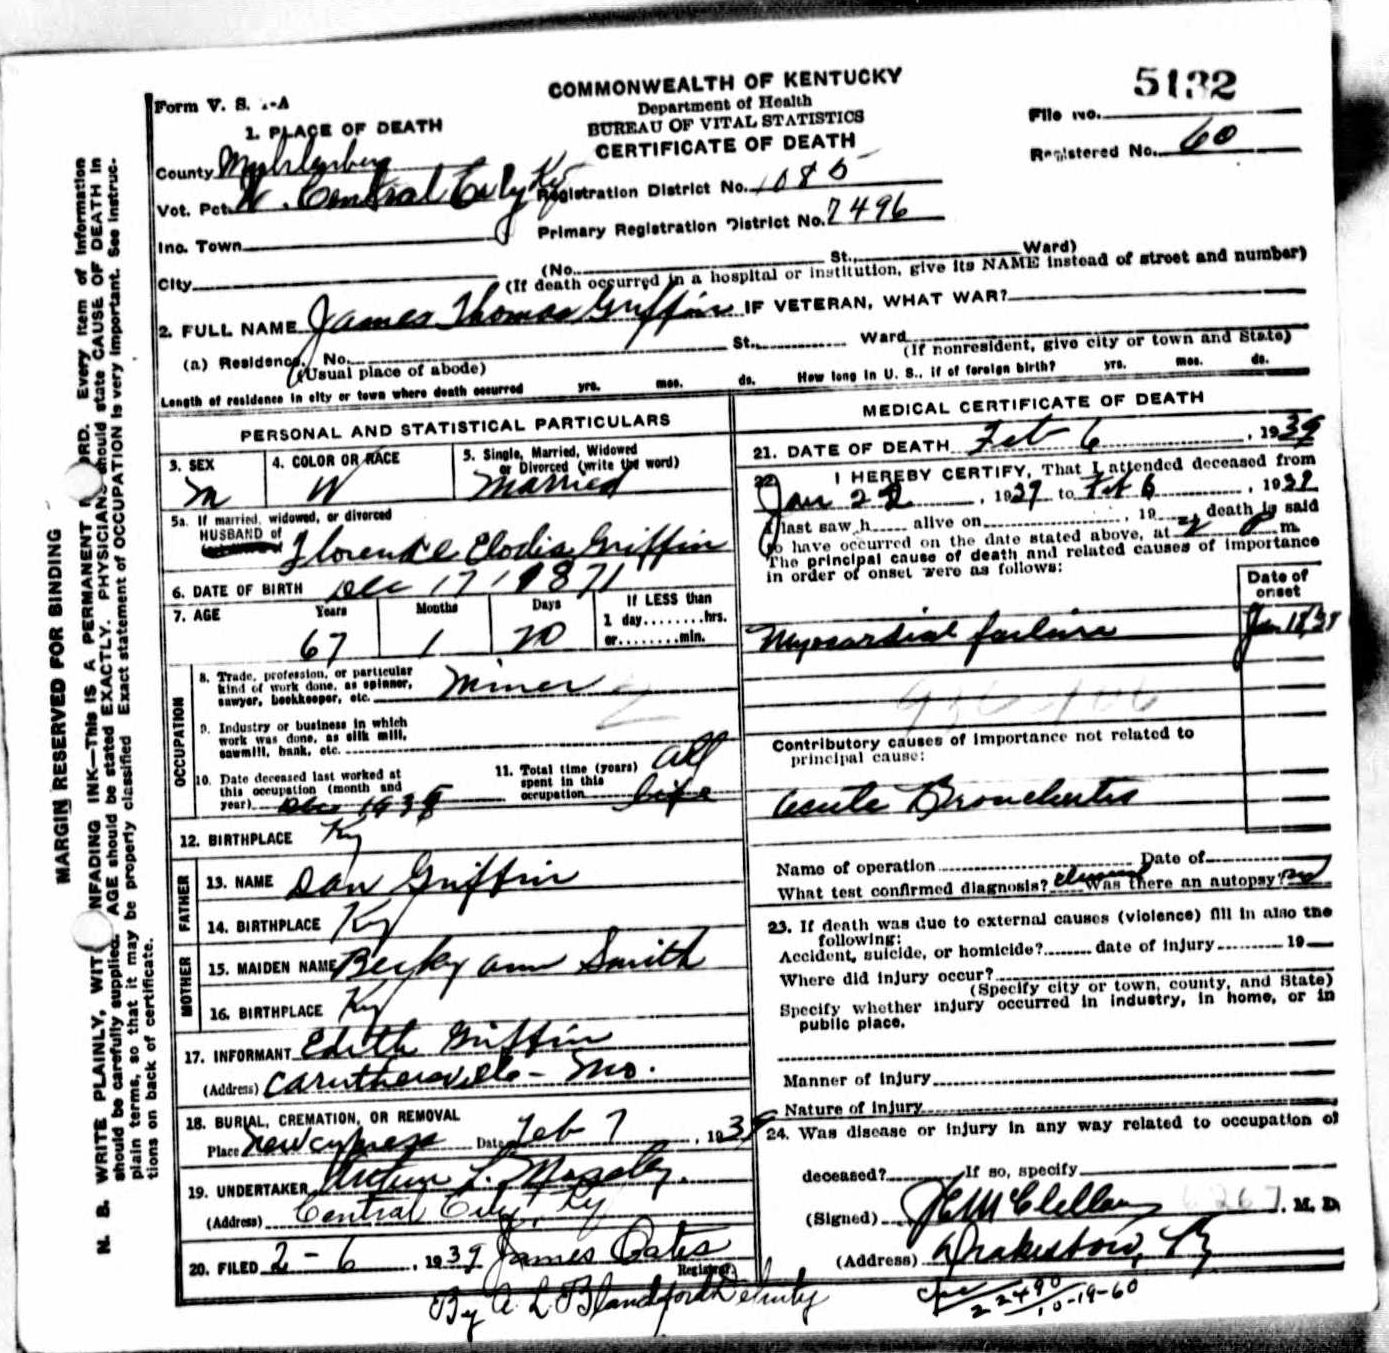 Form V. S. 1-A
COMMONWEALTH OF KENTUCKY
Department of Health
BUREAU OF VITAL STATISTICS
CERTIFICATE OF DEATH
5132
File No.
Registered No. 60
1. PLACE OF DEATH
County Muhlenberg
Vot. Pct. W. Central City Ky
Registration District No. 1085
Inc. Town
Primary Registration District No. 7496
City
(No. St., Ward)
(If death occurred in a hospital or institution, give its NAME instead of street and number)
2. FULL NAME James Thomas Griffin IF VETERAN, WHAT WAR?
(a) Residence. No. St., Ward
(Usual place of abode) (If nonresident, give city or town and State)
Length of residence in city or town where death occurred yrs. mos. ds. How long in U. S., if of foreign birth? yrs. mos. ds.
PERSONAL AND STATISTICAL PARTICULARS
3. SEX M
4. COLOR OR RACE W
5. Single, Married, Widowed or Divorced (write the word) Married
5a. If married, widowed, or divorced
HUSBAND of Florence Elodis Griffin
6. DATE OF BIRTH Dec 17, 1871
7. AGE Years 67 Months 1 Days 20 If LESS than 1 day........hrs. or........min.
OCCUPATION
8. Trade, profession, or particular kind of work done, as spinner, sawyer, bookkeeper, etc. Miner
9. Industry or business in which work was done, as silk mill, sawmill, bank, etc.
10. Date deceased last worked at this occupation (month and year) Dec 1938
11. Total time (years) spent in this occupation All life
12. BIRTHPLACE Ky
FATHER
13. NAME Dan Griffin
14. BIRTHPLACE Ky
MOTHER
15. MAIDEN NAME Becky ann Smith
16. BIRTHPLACE Ky
17. INFORMANT Edith Griffin
(Address) Caruthersville - Mo.
18. BURIAL, CREMATION, OR REMOVAL
Place New cypress Date Feb 7, 1939
19. UNDERTAKER Arthur L. Moseley.
(Address) Central City, Ky
20. FILED 2-6, 1939 James Oates
Registrar.
By A L Blandford Deputy
MEDICAL CERTIFICATE OF DEATH
21. DATE OF DEATH Feb 6, 1939
22. I HEREBY CERTIFY, That I attended deceased from
Jan 22, 1939 to Feb 6, 1939
I last saw h alive on , 19 , death is said
to have occurred on the date stated above, at 2 P m.
The principal cause of death and related causes of importance
in order of onset were as follows:
Date of onset
Myocardial failure Jan 18/39
Contributory causes of importance not related to
principal cause:
acute Bronchitis
Name of operation Date of
What test confirmed diagnosis? clinical Was there an autopsy? no
23. If death was due to external causes (violence) fill in also the
following:
Accident, suicide, or homicide? date of injury 19
Where did injury occur?
(Specify city or town, county, and State)
Specify whether injury occurred in industry, in home, or in
public place.
Manner of injury
Nature of injury
24. Was disease or injury in any way related to occupation of
deceased? If so, specify
(Signed) McClellan M. D.
(Address) Drakesboro, Ky
22490
10-19-60
MARGIN RESERVED FOR BINDING
N. B. WRITE PLAINLY, WITH UNFADING INK—This is A PERMANENT RECORD. Every item of information
should be carefully supplied. AGE should be stated EXACTLY. PHYSICIANS should state CAUSE OF DEATH in
plain terms, so that it may be properly classified. Exact statement of OCCUPATION is very important. See instruc-
tions on back of certificate.